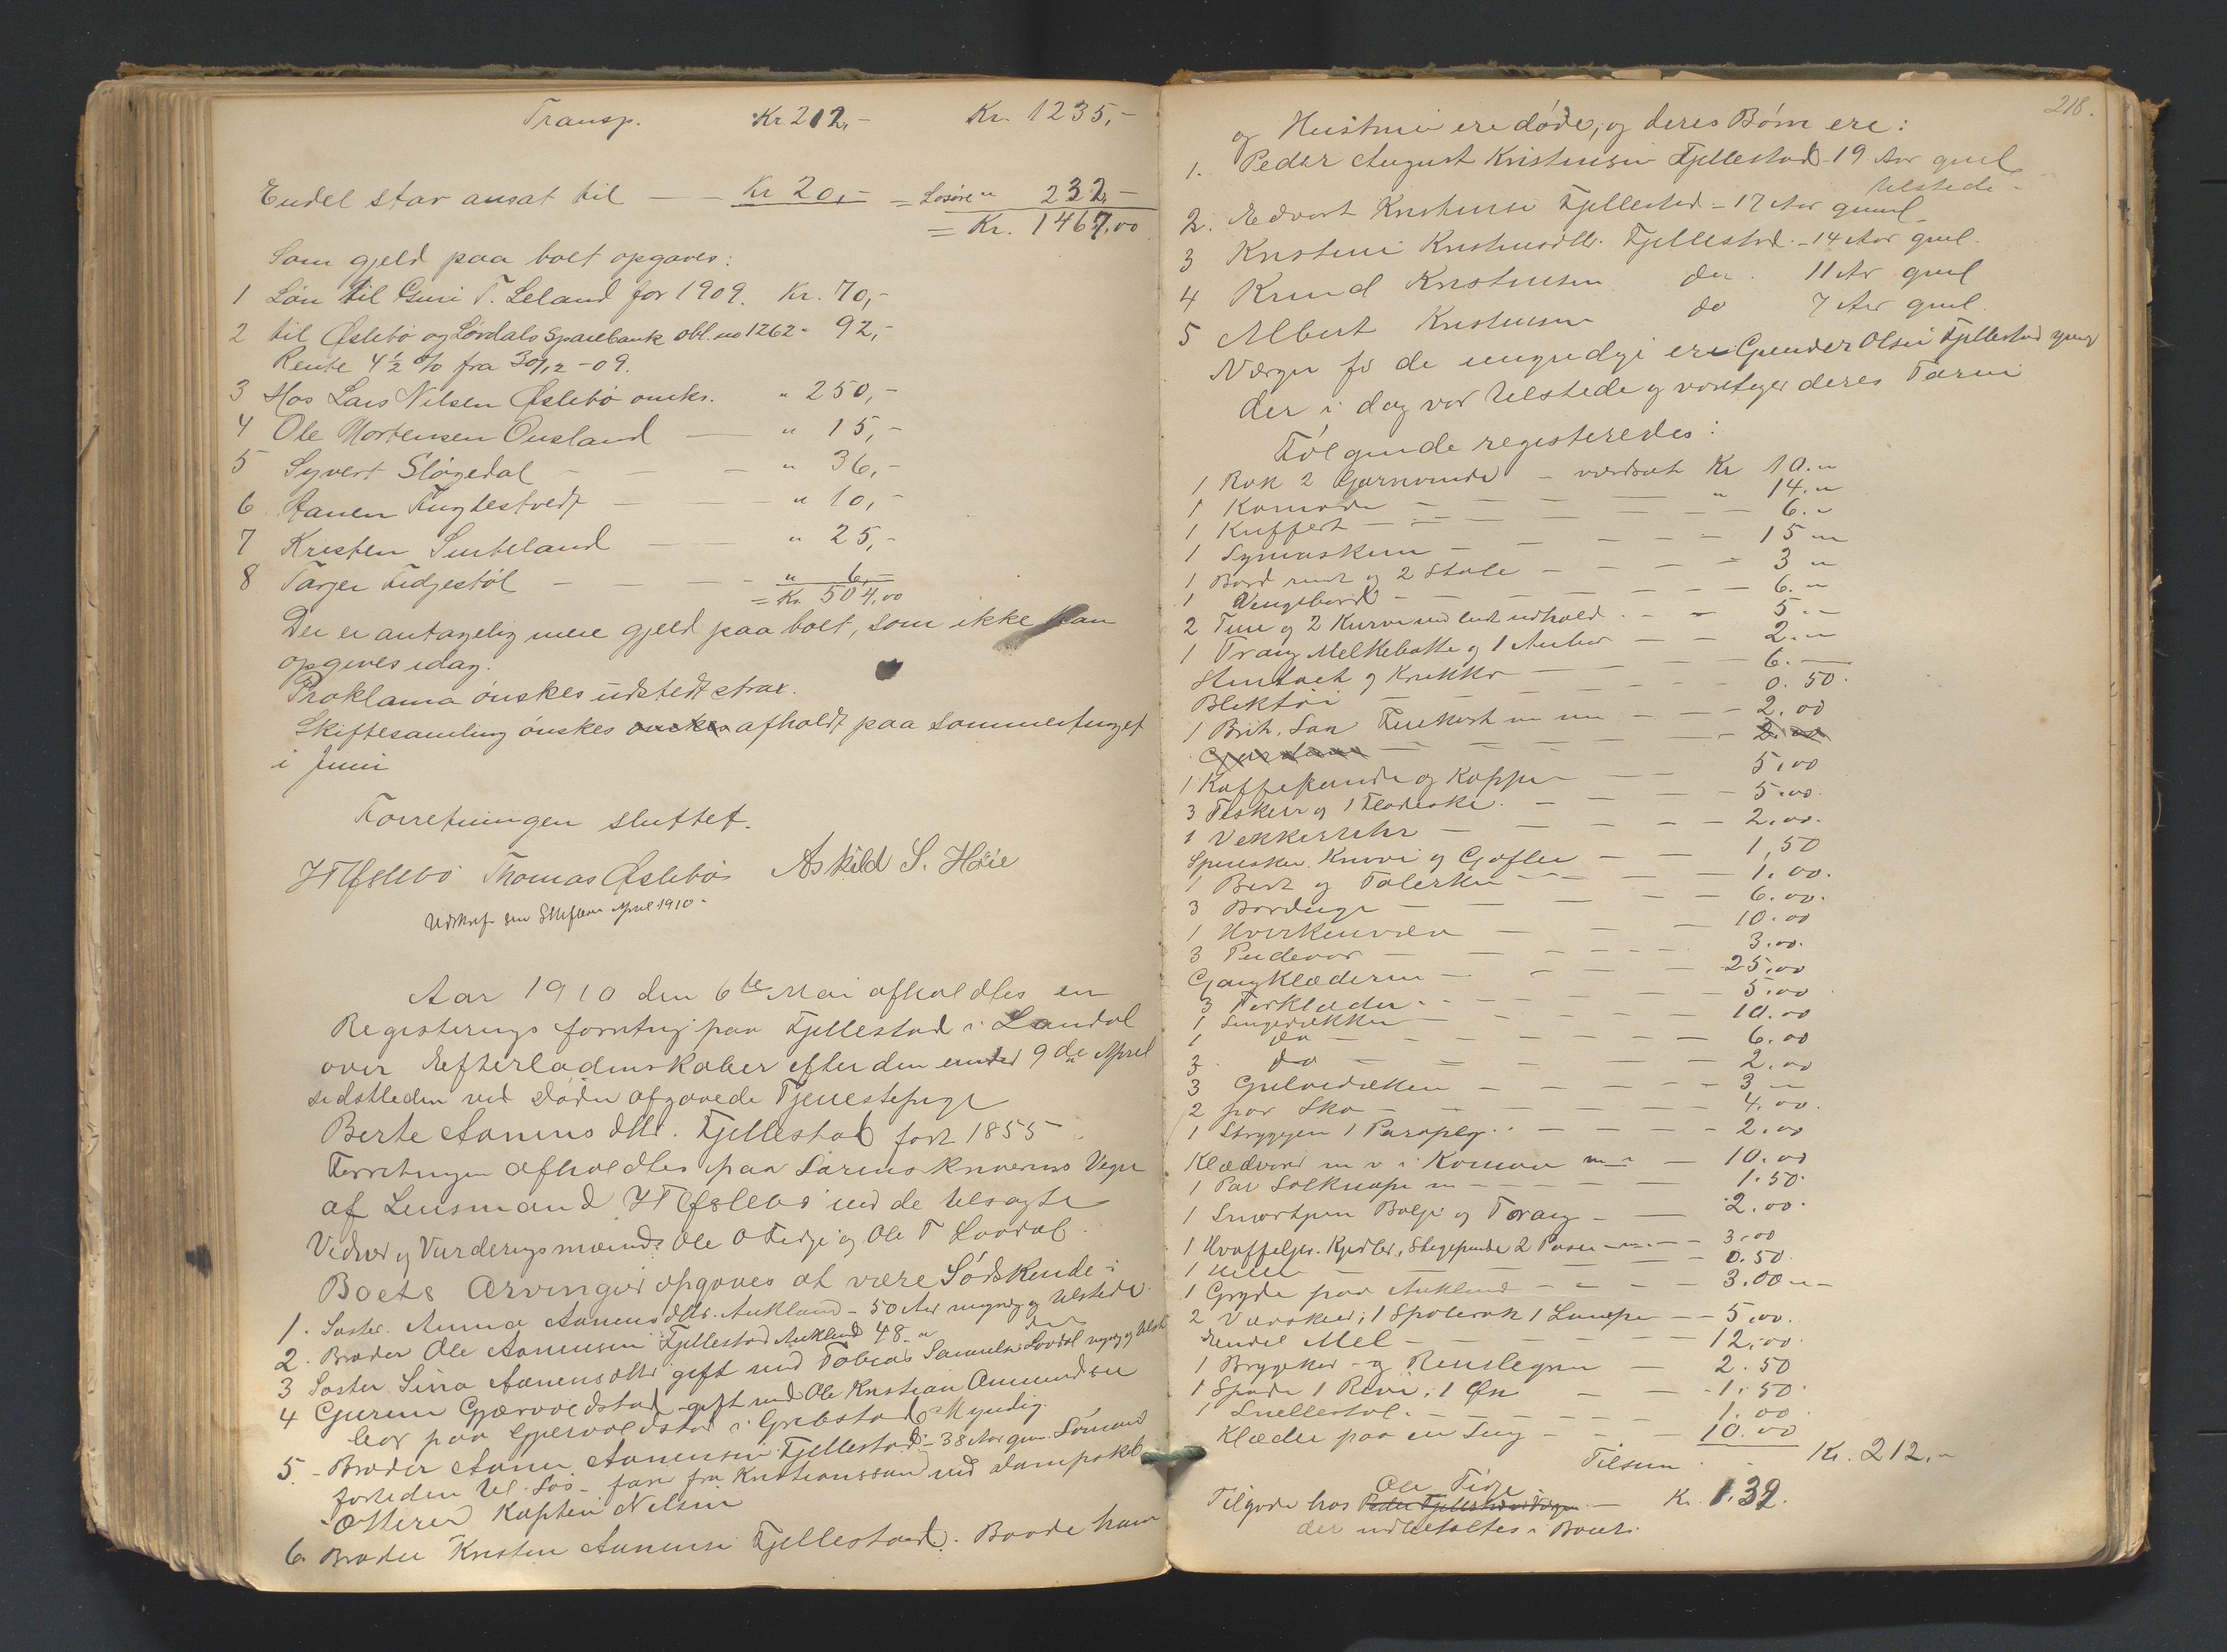 Transp. Kr 212,- Kr. 1235,-
Endel star ansat til — — Kr 20,- = Løsøre " 232,-
= Kr. 1467,00
Som gjeld paa boet opgaves:
1 Løn til Guri T. Leland for 1909. Kr. 70,-
2 til Øslebø og Løvdals Sparebank obl. no 1262 - 92,-
Rente 4 1/2 % fra 30/12 - 09.
3 Hos Lars Nilsen Øslebø omkr. " 250,-
4 Ole Mortensen Ousland — " 15,-
5 Syvert Sløgedal - - - " 36,-
6 Aanen Fuglestvedt - - - " 10,-
7 Kristen Smeland — — " 25,-
8 Tarjer Fidjestøl - - - - " 6,-
= Kr. 504,00
Der er antagelig mere gjeld paa boet, som ikke kan
opgives idag.
Proklama ønskes udstedt strax.
Skiftesamling ønskes ønskes afholdt paa sommertinget
i Juni
Forretningen sluttet.
H T Øslebø Thomas Øslebø Askild S. Høie
Udskrift sen Skifteren April 1910 -
Aar 1910 den 6te Mai afholdtes en
Registerings forretng paa Fjellestad i Laudal
over Efterladenskaber efter den under 9de April
sidstleden ved Døden afgaaede Tjenestepige
Berte Aanensdtr. Fjellestad født 1855
Forretningen afholdtes paa Sorenskriverens Vegne
af Lensmand H T Øslebø med de tilsagte
Vidner og Vurderingsmænd Ole O Fidje og Ole T Løvdal.
Boets Arvinger opgaves at være Sødskende:
1. Søster. Anna Aanensdtr. Aukland - 50 Aar myndig og tilstede.
2. Broder Ole Aanensen Fjellestad Aukland 48 - " do
3 Søster Sina Aanensdtr gift med Tobias Samuelsen Løvdal myndig og tilst
4 Gurine Gjærvoldstad - gift med Ole Kristian Aanundsen
bor paa Gjervoldstad i Grebstad, Myndig.
5 - Broder Aanen Aanensen Fjellestad - 38 Aar gm. Sømand
forleden til Søs - farer fra Kristianssand ved Dampskib
Otterø Kaptein Nilsen
6. Broder Kristen Aanensen Fjellestad. Baade han
218.
og Hustru ere døde, og deres Børn ere:
1. Peder August Kristensen Fjellestad - 19 Aar gml
tilstede -
2. Edvart Kristensen Fjellestad - 17 Aar gmml -
3 Kristine Kristensdtr. Fjellestad. - 14 Aar gml.
4 Knud Kristensen do. 11 Ar gml
5 Albert Kristensen do 7 Aar gml.
Værge for de umyndige er Gunder Olsen Fjellestad yngr
der i dag var tilstede og varetager deres Tarv
Følgende registeredes:
1 Rok 2 Garnvinde - værdsat Kr 10."
1 Komode - - - - " 14."
1 Kuffert - - - - 6."
1 Symaskin - - - - 15 "
1 Bord rundt og 2 Stole - - - - 3 "
1 Vengebord - - - - 6."
2 Tiner og 2 Kurve med lidt indhold - - 5.-
1 Traug Melkebøtte og 1 Anker - - 2."
Stentøi og Krukker - - - - 6.—
Bliktøi - - - - 0.50.
1 Brit. Saa Fiirkant m m - - - 2.00
2.00
1 Kaffekande og Kopper - - - 5.00
3 Teskeer og 1 Flødeske. - - - 5.00.
1 Vekkeruhr - - - - 2.00.
Spiseskeer Knive og Gafler - - 1,50
1 Bret og Talerken - - - 1.00.
3 Borduge - - - - 6.00.
1 Hvirkenvæv - - - 10.00
3 Pudevar - - - - 3.00.
Gangklæderne - - - - 25,00
3 Forklæder. - - - - 5.00
1 Sengedækken - - - - 10.00
1 do - - - - 6.00
3 do - - - - 2.00
3 Gulvdækken - - - - 3 —
2 par Sko - - - - 4.00.
1 Strygejern 1 Paraply. - - - - 2.00
Klædvare m v i Komoden m - — 10.00
1 Par Sølknapper m - - - - 1.50.
1 Smørkjerne Balje og Traug - — 2.00.
1 Vaffeljer. Kjedler, Stegepande 2 Poser - m - 3.00
1 - - - - 0.50.
1 Gryde paa Aukland - - - - 3.00 —
2 Vævskeer; 1 Spolerok 1 Lampe — 5.00.
Endel Mel - - - - 12,00.
1 Bryggekar - og - 2.50
1 Spade 1 Rive; 1 Øx - - - 1.50.
1 Snellestol. - - - - 1.00.
Klæder paa en Seng - - - 10.00
Tilsam - - Kr. 212.-
Ole Fidje
Tilgode hos Peder Fjellestad - Kr. 1.32.
der indbetaltes i Boet.